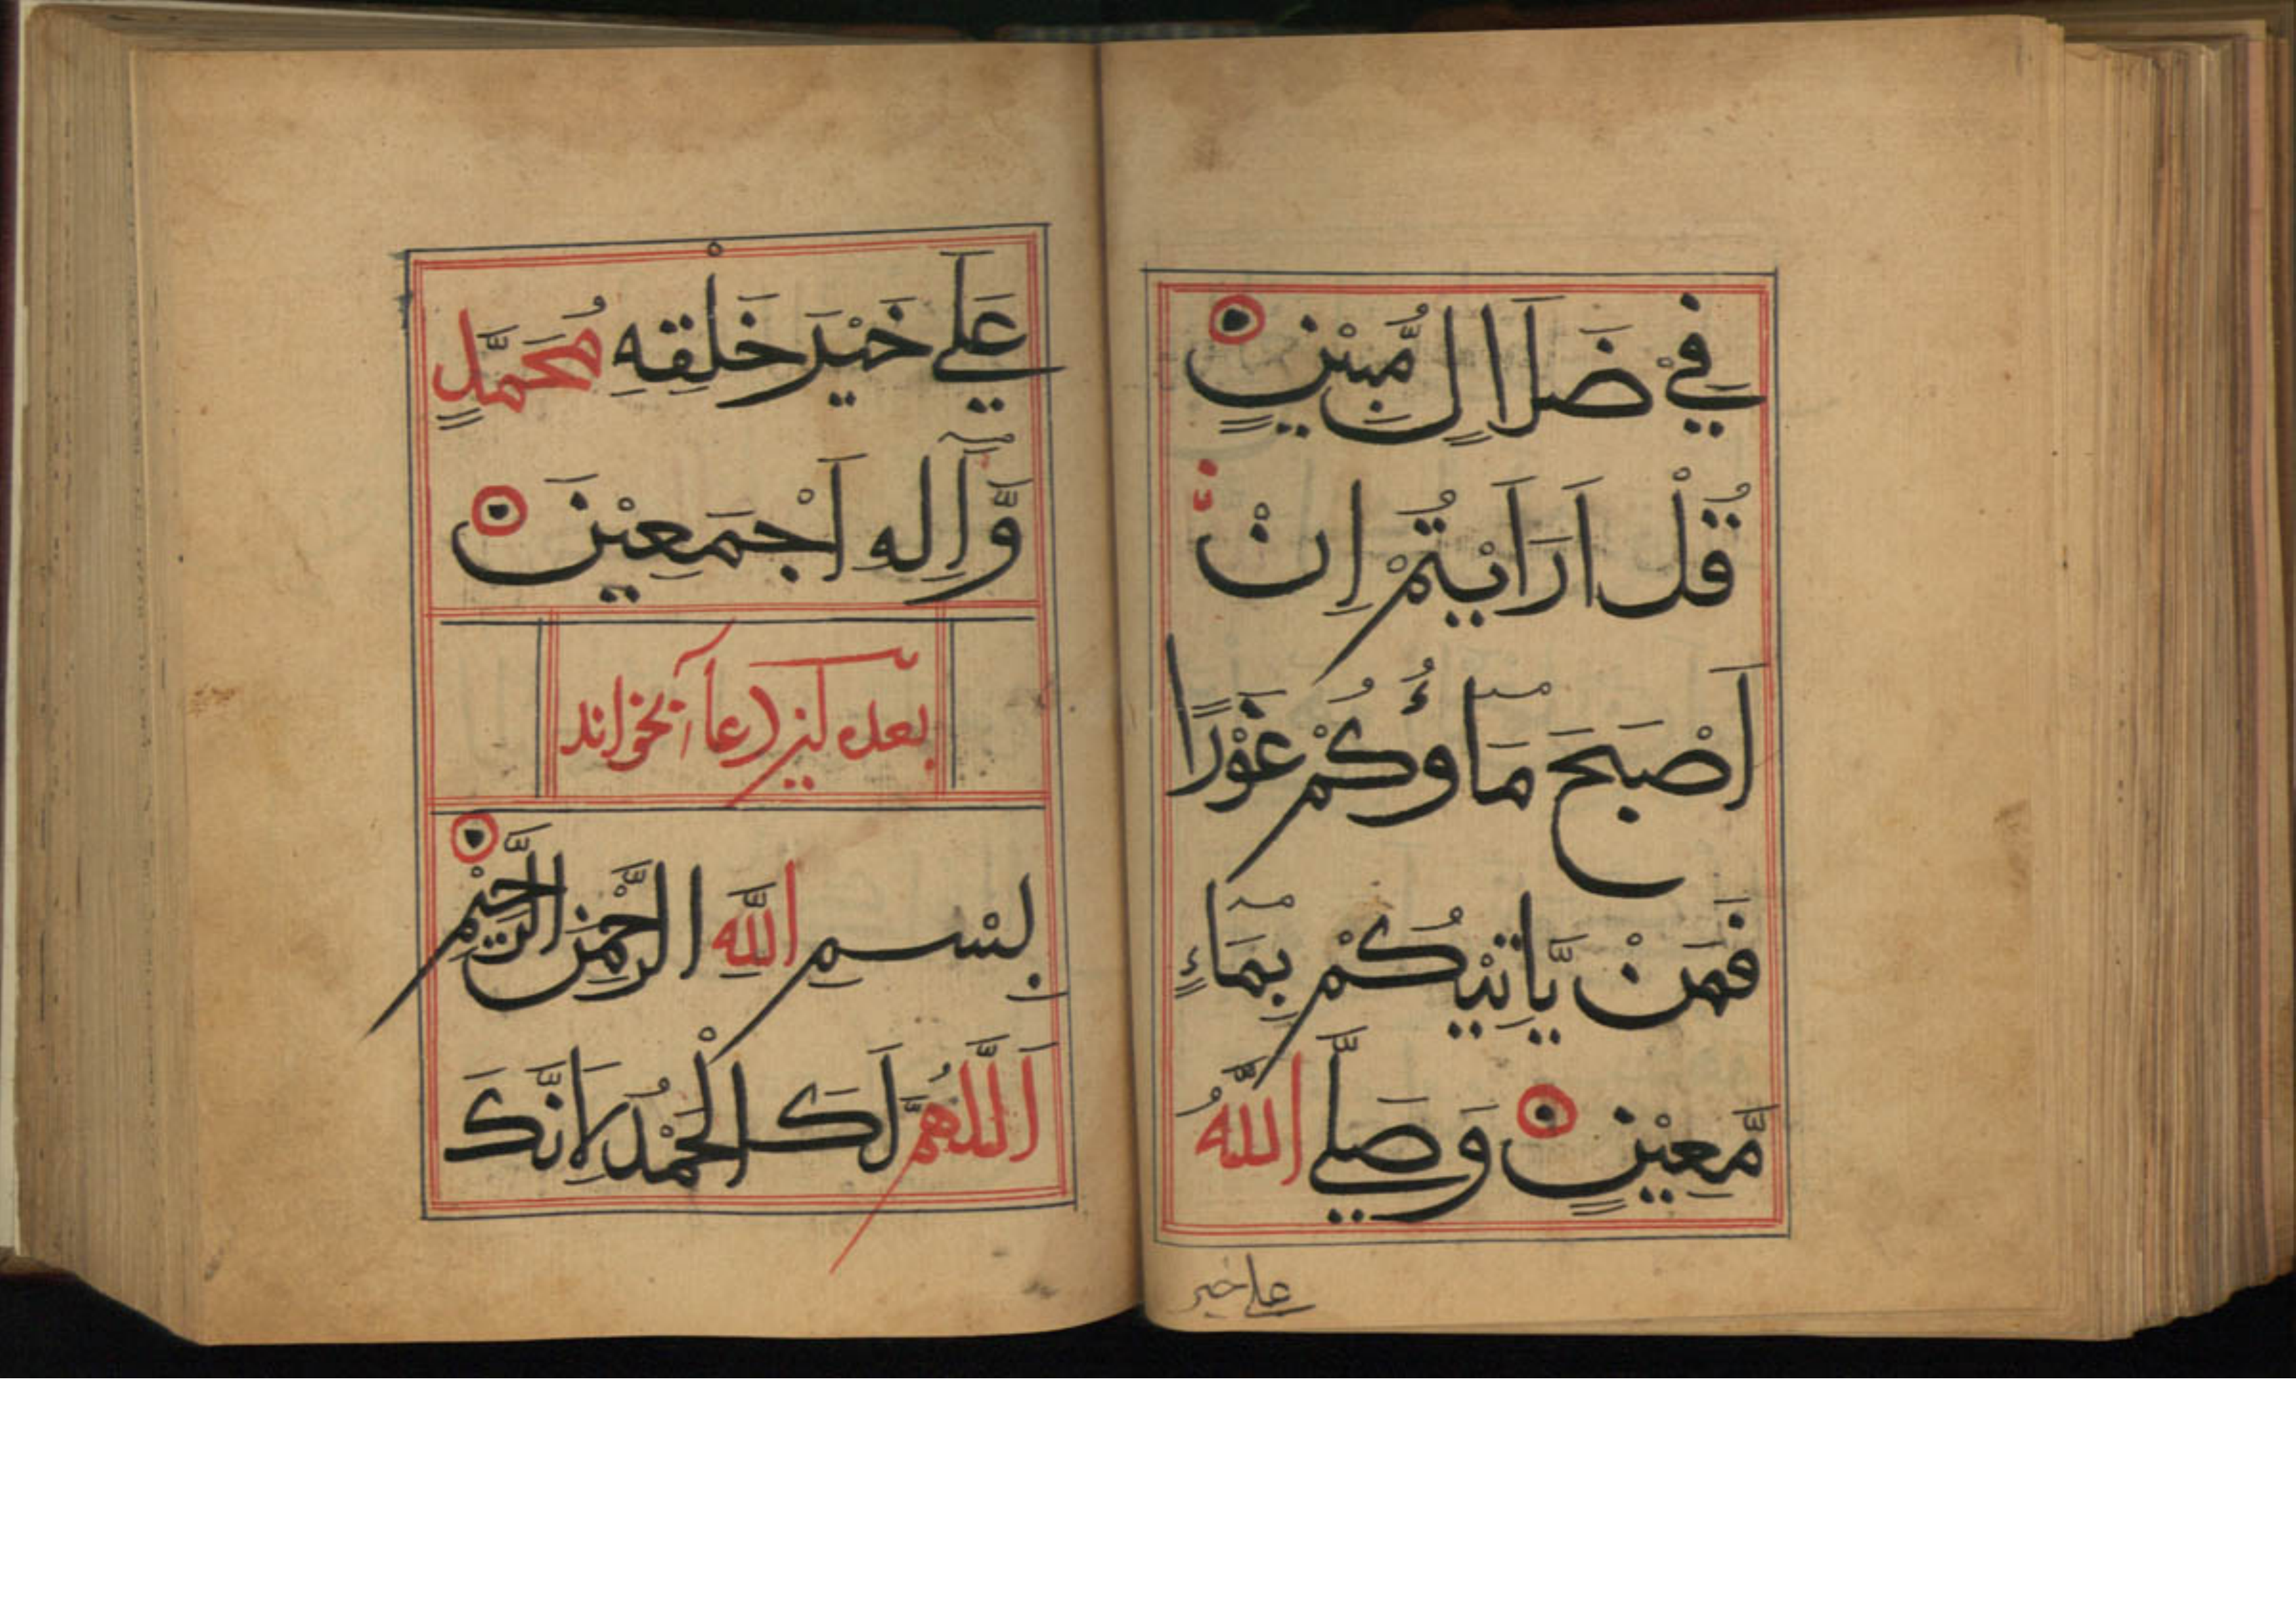 فِيْ ضَلَالٍ مُّبِيْنٍ
قُلْ اَرَاَيْتُمْ اِنْ
اَصْبَحَ مَاۤؤُكُمْ غَوْرًا
فَمَنْ يَّاتِيْكُمْ بِمَاۤءٍ
مَّعِيْنٍ وَصَلَّي اللّٰهُ
علے خیر
عَلے خَيْرِ خَلْقِهِ مُحَمَّدٍ
وَّاٰلِهِ اَجْمَعِيْنَ
بعده این دعا بخواند
بِسْمِ اللّٰهِ الرَّحْمٰنِ الرَّحِيْمِ
اَللّٰهُمَّ لَكَ الْحَمْدُ لِاَنَّكَ